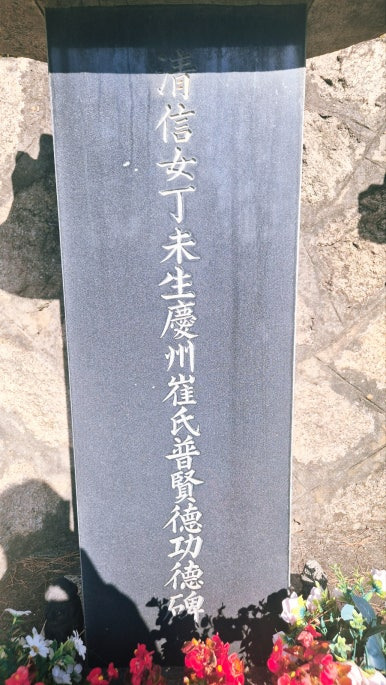 清信女丁未生慶州崔氏普賢德功德碑